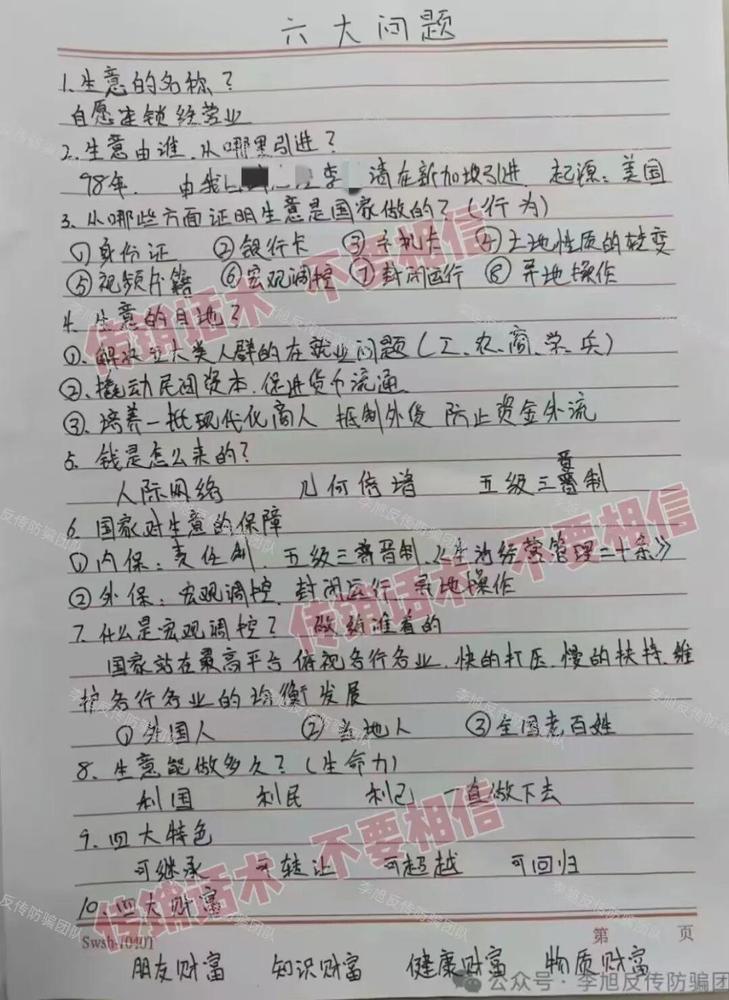 六大问题
1.生意的名称?
自愿连锁经营业
2.生意由谁、从哪里引进?
98年. 由我 李 清在新加坡引进. 起源:美国
3.从哪些方面证明生意是国家做的?(行为)
①身份证 ②银行卡 ③手机卡 ④土地性质的转变
⑤视频片籍 ⑥宏观调控 ⑦封闭运行 ⑧异地操作
传销话术 不要相信
4.生意的目地?
①、解决五大类人群的在就业问题(工、农、商、学、兵)
②、撬动民间资本.促进货币流通
③、培养一批现代化商人 抵制外货 防止资金外流
5.钱是怎么来的?
人际网络 几何倍增 五级三晋制
6.国家对生意的保障
①内保:责任制、五级三晋制、《生活经营管理二十条》
②外保:宏观调控、封闭运行、异地操作
传销话术 不要相信
7.什么是宏观调控? 做给谁看的
国家站在最高平台俯视各行各业.快的打压、慢的扶持、维
护各行各业的均衡发展
①外国人 ②当地人 ③全国老百姓
8.生意能做多久?(生命力)
利国 利民 利己 一直做下去
9.四大特色
可继承 可转让 可超越 可回归
传销话术 不要相信
10.四大财富
Swsh-10401 第 页
朋友财富 知识财富 健康财富 物质财富
公众号·李旭反传防骗团
李旭反传防骗团队